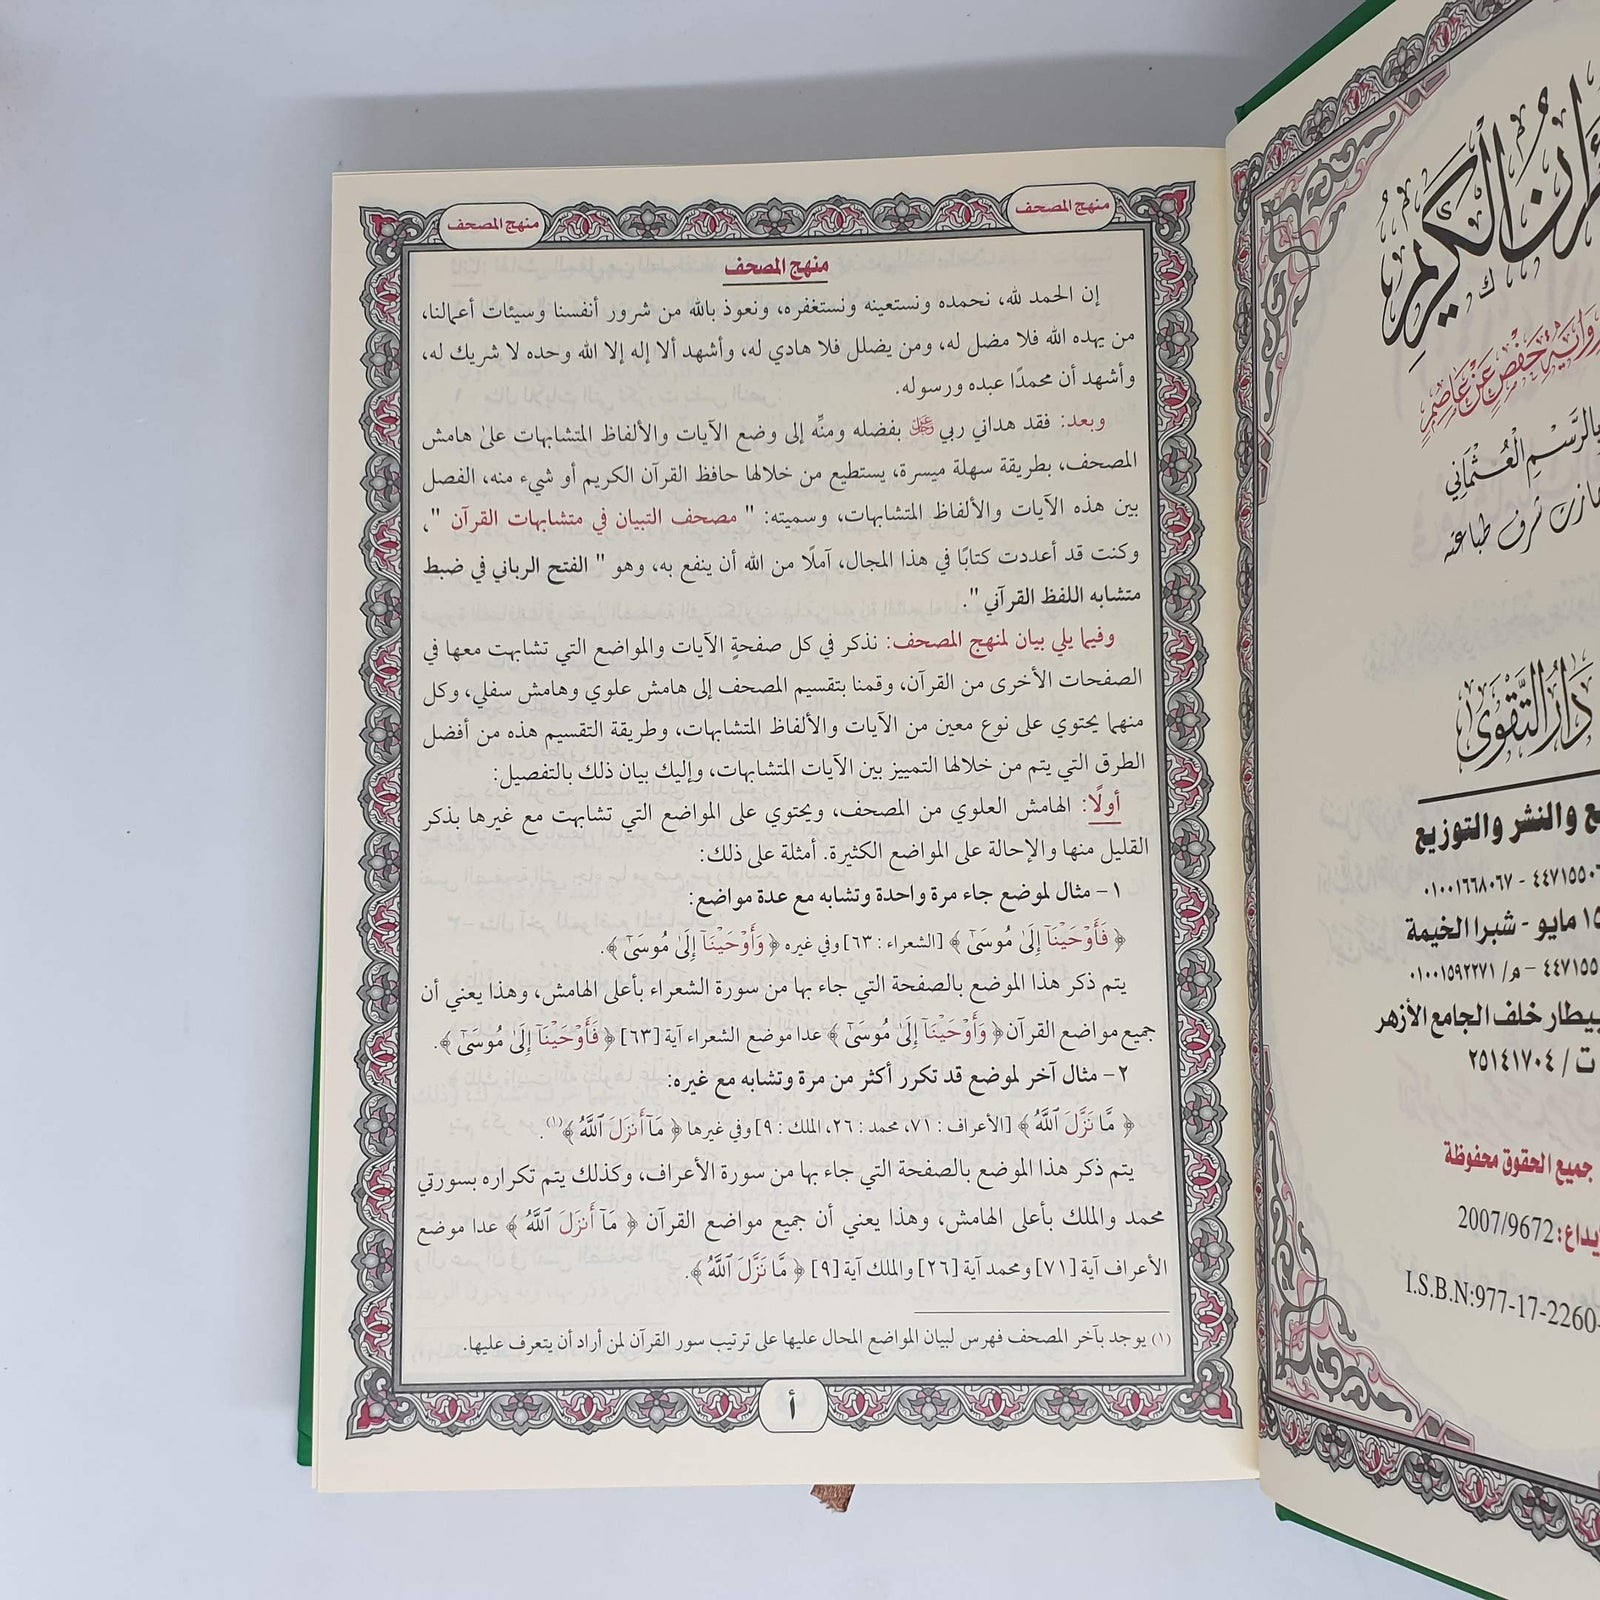 القرآن الكريم
برواية حفص عن عاصم
بالرسم العثماني
شرف طباعته
دار التقوى
والنشر والتوزيع
٠١٠٠١٦٦٨٠٦٧
١٥ مايو - شبرا الخيمة
م/ ٠١٠٠١٥٩٢٢٧١
خلف الجامع الأزهر
ت / ٢٥١٤١٧٠٤
جميع الحقوق محفوظة
2007/9672
I.S.B.N:977-17-2260-
منهج المصحف
منهج المصحف
منهج المصحف
إن الحمد لله، نحمده ونستعينه ونستغفره، ونعوذ بالله من شرور أنفسنا وسيئات أعمالنا،
من يهده الله فلا مضل له، ومن يضلل فلا هادي له، وأشهد ألا إله إلا الله وحده لا شريك له،
وأشهد أن محمدًا عبده ورسوله.
وبعد: فقد هداني ربي ﷻ بفضله ومنِّه إلى وضع الآيات والألفاظ المتشابهات على هامش
المصحف، بطريقة سهلة ميسرة، يستطيع من خلالها حافظ القرآن الكريم أو شيء منه، الفصل
بين هذه الآيات والألفاظ المتشابهات، وسميته: " مصحف التبيان في متشابهات القرآن "،
وكنت قد أعددت كتابًا في هذا المجال، آملًا من الله أن ينفع به، وهو " الفتح الرباني في ضبط
متشابه اللفظ القرآني ".
وفيما يلي بيان لمنهج المصحف: نذكر في كل صفحةٍ الآيات والمواضع التي تشابهت معها في
الصفحات الأخرى من القرآن، وقمنا بتقسيم المصحف إلى هامش علوي وهامش سفلي، وكل
منهما يحتوي على نوع معين من الآيات والألفاظ المتشابهات، وطريقة التقسيم هذه من أفضل
الطرق التي يتم من خلالها التمييز بين الآيات المتشابهات، وإليك بيان ذلك بالتفصيل:
أولًا: الهامش العلوي من المصحف، ويحتوي على المواضع التي تشابهت مع غيرها بذكر
القليل منها والإحالة على المواضع الكثيرة. أمثلة على ذلك:
١- مثال لموضع جاء مرة واحدة وتشابه مع عدة مواضع:
﴿ فَأَوْحَيْنَآ إِلَىٰ مُوسَىٰٓ ﴾ [الشعراء : ٦٣] وفي غيره ﴿ وَأَوْحَيْنَآ إِلَىٰ مُوسَىٰٓ ﴾.
يتم ذكر هذا الموضع بالصفحة التي جاء بها من سورة الشعراء بأعلى الهامش، وهذا يعني أن
جميع مواضع القرآن ﴿ وَأَوْحَيْنَآ إِلَىٰ مُوسَىٰٓ ﴾ عدا موضع الشعراء آية [٦٣] ﴿ فَأَوْحَيْنَآ إِلَىٰ مُوسَىٰٓ ﴾.
٢- مثال آخر لموضع قد تكرر أكثر من مرة وتشابه مع غيره:
﴿ مَّا نَزَّلَ ٱللَّهُ ﴾ [الأعراف : ٧١، محمد : ٢٦، الملك : ٩] وفي غيرها ﴿ مَآ أَنزَلَ ٱللَّهُ ﴾(١).
يتم ذكر هذا الموضع بالصفحة التي جاء بها من سورة الأعراف، وكذلك يتم تكراره بسورتي
محمد والملك بأعلى الهامش، وهذا يعني أن جميع مواضع القرآن ﴿ مَآ أَنزَلَ ٱللَّهُ ﴾ عدا موضع
الأعراف آية [٧١] ومحمد آية [٢٦] والملك آية [٩] ﴿ مَّا نَزَّلَ ٱللَّهُ ﴾.
(١) يوجد بآخر المصحف فهرس لبيان المواضع المحال عليها على ترتيب سور القرآن لمن أراد أن يتعرف عليها.
أ